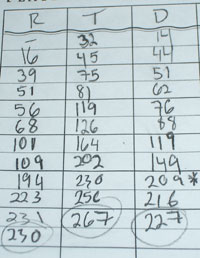 R T D
– 32 14
16 45 44
39 75 51
51 81 62
56 119 76
68 126 88
101 164 119
109 202 149
194 230 209*
223 256 216
231 267 227
230